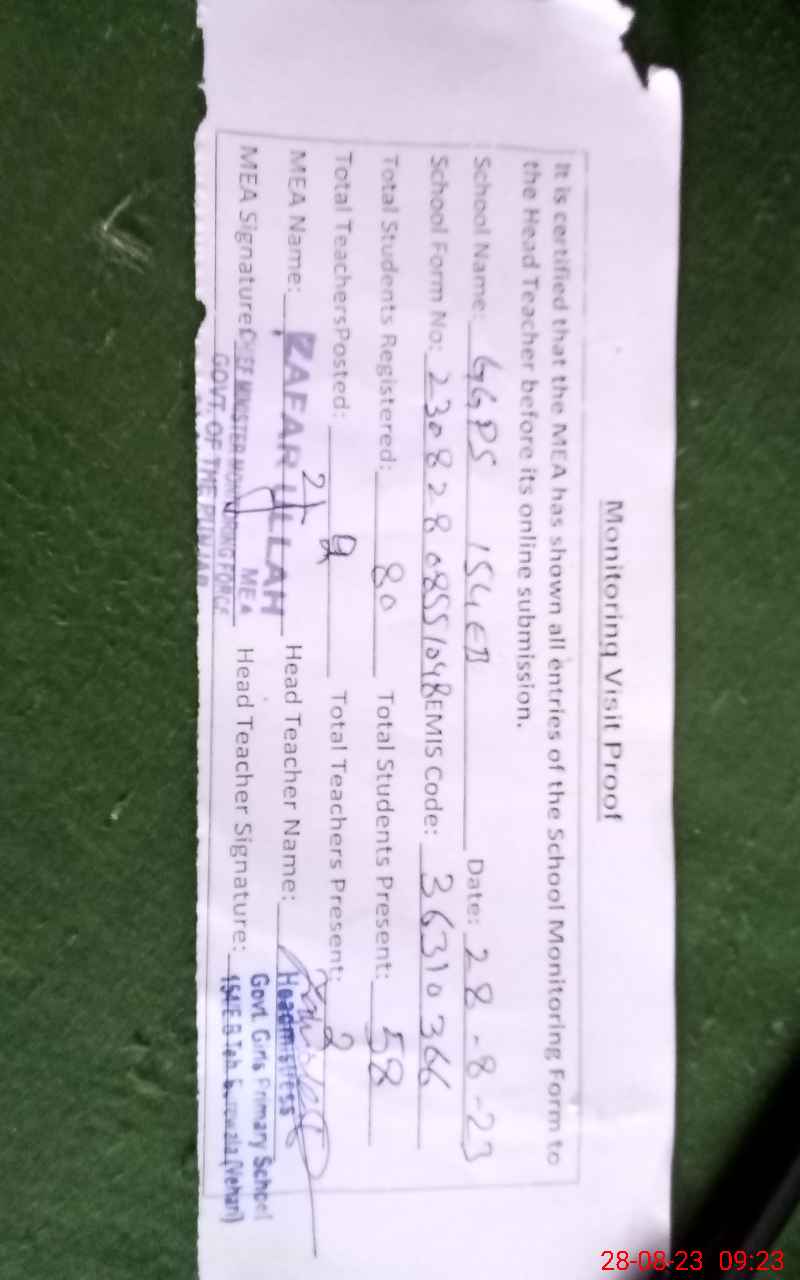 Monitoring Visit Proof
It is certified that the MEA has shown all entries of the School Monitoring Form to
the Head Teacher before its online submission.
School Name: GGPS 154 EB Date: 28-8-23
School Form No: 23082808551048 EMIS Code: 36310366
Total Students Registered: 80 Total Students Present: 58
Total TeachersPosted: 2 Total Teachers Present: 2
MEA Name: ZAFAR ULLAH Head Teacher Name:
MEA Signature: Head Teacher Signature:
CHIEF MINISTER MONITORING FORCE
MEA
GOVT. OF THE PUNJAB
Headmistress
Govt. Girls Primary School
154/E.B Teh. Burewala (Vehari)
28-08-23 09:23